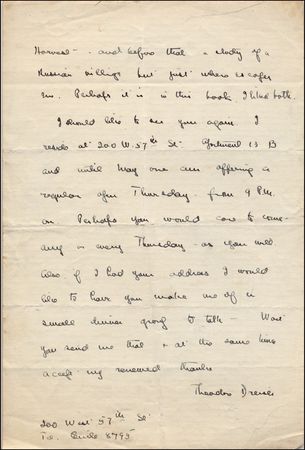 Harvest - and before that a study of a
Russian village but just where escapes
me. Perhaps it is in this book. I liked both.
I should like to see you again. I
reside at 200 W. 57th St - Apartment 13 B
and until May one am offering a
regular open Thursday - from 9 P.M.
on. Perhaps you would care to come -
any or every Thursday - as you will
Also if I had your address I would
like to have you make one of a
small dinner group to talk - Won't
you send me that & at the same time
accept my renewed thanks
Theodore Dreiser
200 West 57th St
Tel. Circle 8795